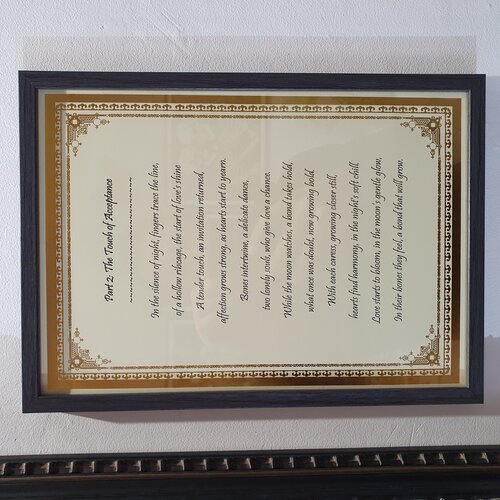 Part 2: The Touch of Acceptance
~~~~~~~~~~~~~~~~~~~~
In the silence of night, fingers trace the line,
of a hollow ribcage, the start of love's shine
A tender touch, an invitation returned,
affection grows strong, as hearts start to yearn.
Bones intertwine, a delicate dance,
two lonely souls, who give love a chance.
While the moon watches, a bond takes hold,
what once was doubt, now growing bold.
With each caress, growing closer still,
hearts find harmony, in the night's soft chill.
Love starts to bloom, in the moon's gentle glow,
In their bones they feel, a bond that will grow.